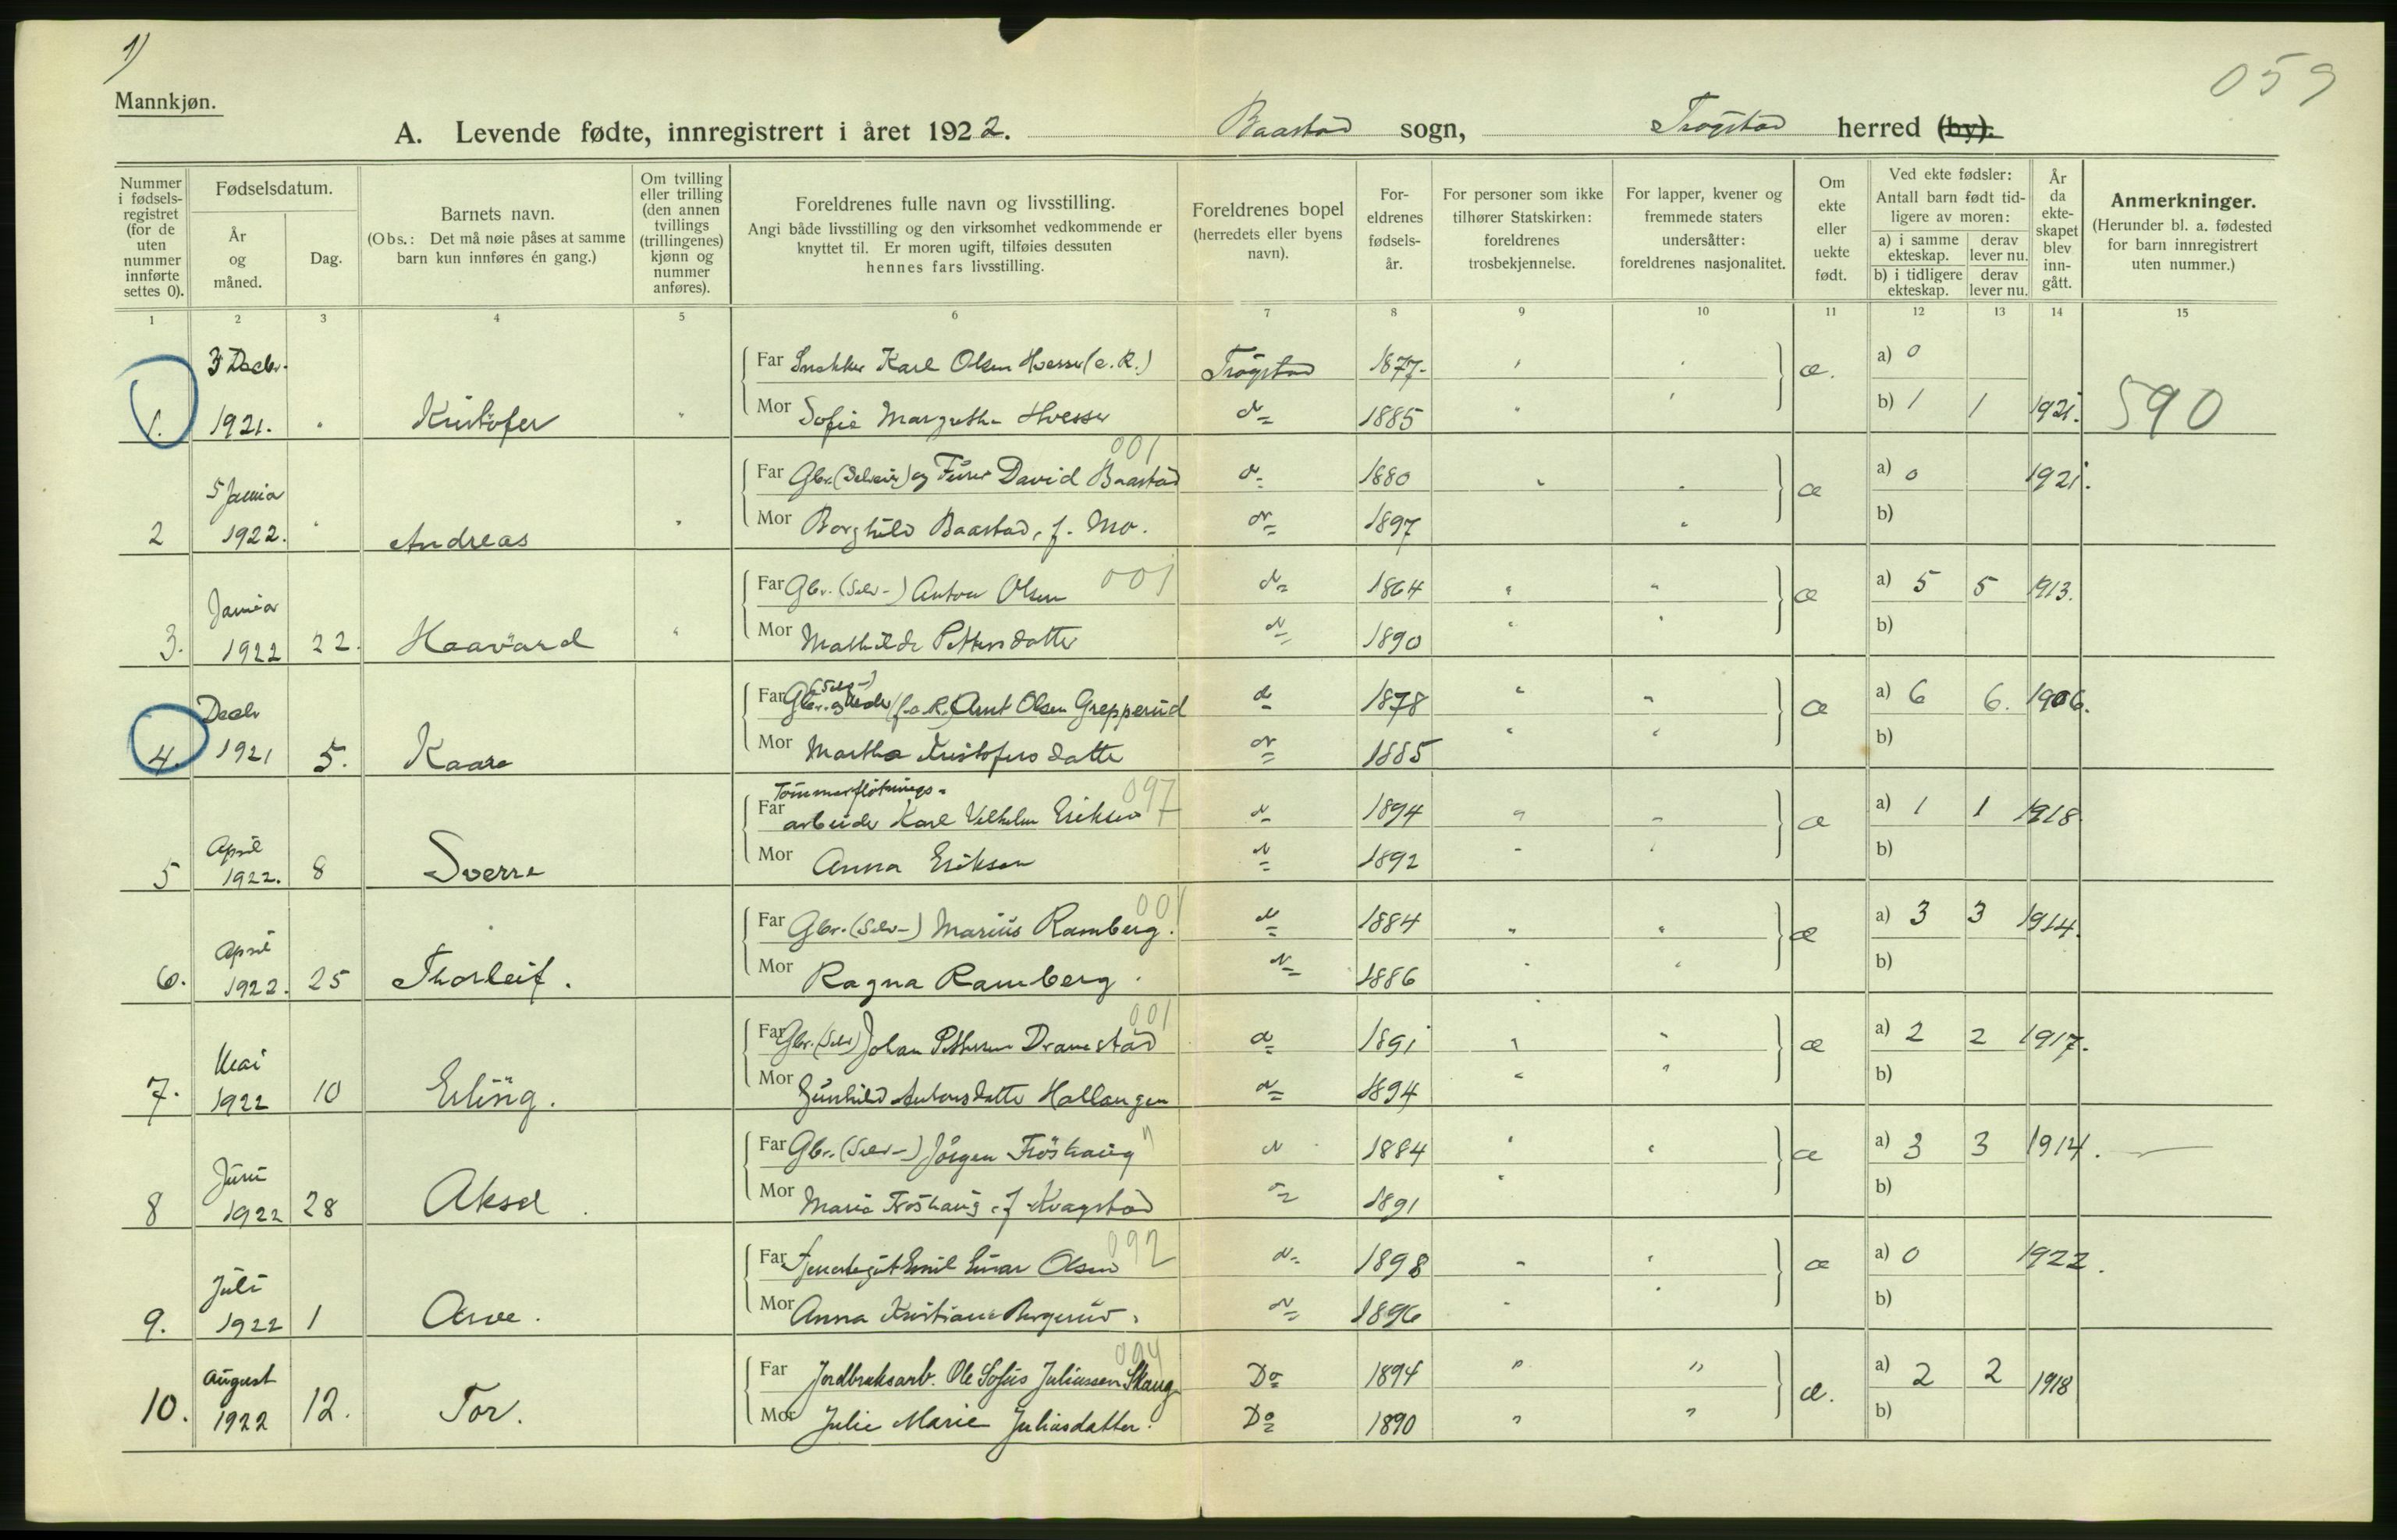 1)
059
Mannkjøn.
A. Levende fødte, innregistrert i året 1922. Baastad sogn, Trøgstad herred (by).
Nummer i fødsels-registret (for de uten nummer innførte settes 0).
Fødselsdatum.
År og måned.
Dag.
Barnets navn.
(Obs.: Det må nøie påses at samme barn kun innføres én gang.)
Om tvilling eller trilling (den annen tvillings (trillingenes) kjønn og nummer anføres).
Foreldrenes fulle navn og livsstilling.
Angi både livsstilling og den virksomhet vedkommende er knyttet til. Er moren ugift, tilføies dessuten hennes fars livsstilling.
Foreldrenes bopel (herredets eller byens navn).
For-eldrenes fødsels-år.
For personer som ikke tilhører Statskirken: foreldrenes trosbekjennelse.
For lapper, kvener og fremmede staters undersåtter: foreldrenes nasjonalitet.
Om ekte eller uekte født.
Ved ekte fødsler: Antall barn født tid-ligere av moren:
a) i samme ekteskap. derav lever nu.
b) i tidligere ekteskap. derav lever nu.
År da ekte-skapet blev inn-gått.
Anmerkninger.
(Herunder bl. a. fødested for barn innregistrert uten nummer.)
1 2 3 4 5 6 7 8 9 10 11 12 13 14 15
3 Decbr. Far Snekker Karl Olsen (e. R.) Trøgstad 1877. " " æ. a) 0
1. 1921. " Kristofer " Mor Sofie Margrethe do 1885 " " b) 1 1 1921. 590
001
5 Januar Far Gbr. (Selveier) og David Baastad do 1880 " " æ a) 0 1921.
2 1922. " Andreas " Mor Borghild Baastad, f. Mo. do 1897 " b)
Januar Far Gbr. (Selv-) Anton Olsen 001 do 1864 " " æ a) 5 5 1913.
3. 1922 22. Haavard " Mor Mathilde Pettersdatter do 1890 " " b)
Decbr Far Gbr. (Selv-) og Arnt Olsen Grepperud do 1878 " " æ a) 6 6. 1906.
4. 1921 5. Kaare Mor Martha Kristofersdatter do 1885 " " b)
Tømmerfløtnings- 097
April Far arbeider Karl Vilhelm Eriksen do 1894 " " æ a) 1 1 1918
5 1922. 8 Sverre Mor Anna Eriksen do 1892 " " b)
001
April Far Gbr. (Selv-) Marius Ramberg. do 1884 " " æ a) 3 3 1914.
6. 1922. 25 Thorleif. Mor Ragna Ramberg. do 1886 " " b)
001
Mai Far Gbr. (Selv) Johan Pettersen Dramstad do 1891 " " æ a) 2 2 1917.
7. 1922 10 Erling. Mor Gunhild Antonsdatter Hallangen do 1894 " " b)
Juni Far Gbr. (Selv-) Jørgen Frøshaug " do 1884 " " æ a) 3 3 1914. —
8 1922 28 Aksel. Mor Marie Frøshaug, f. Kragstad do 1891 " b)
092
Juli Far Emil Einar Olsen do 1898 " " æ a) 0 1922.
9. 1922 1 Arve. Mor Anna Kristiane Bergerud. do 1896 " " b)
094
August Far Jordbruksarb. Ole Sofus Juliussen Skaug Do 1894 " " æ. a) 2 2 1918
10. 1922 12. Tor. Mor Julie Marie Juliusdatter. Do 1890 " " b)